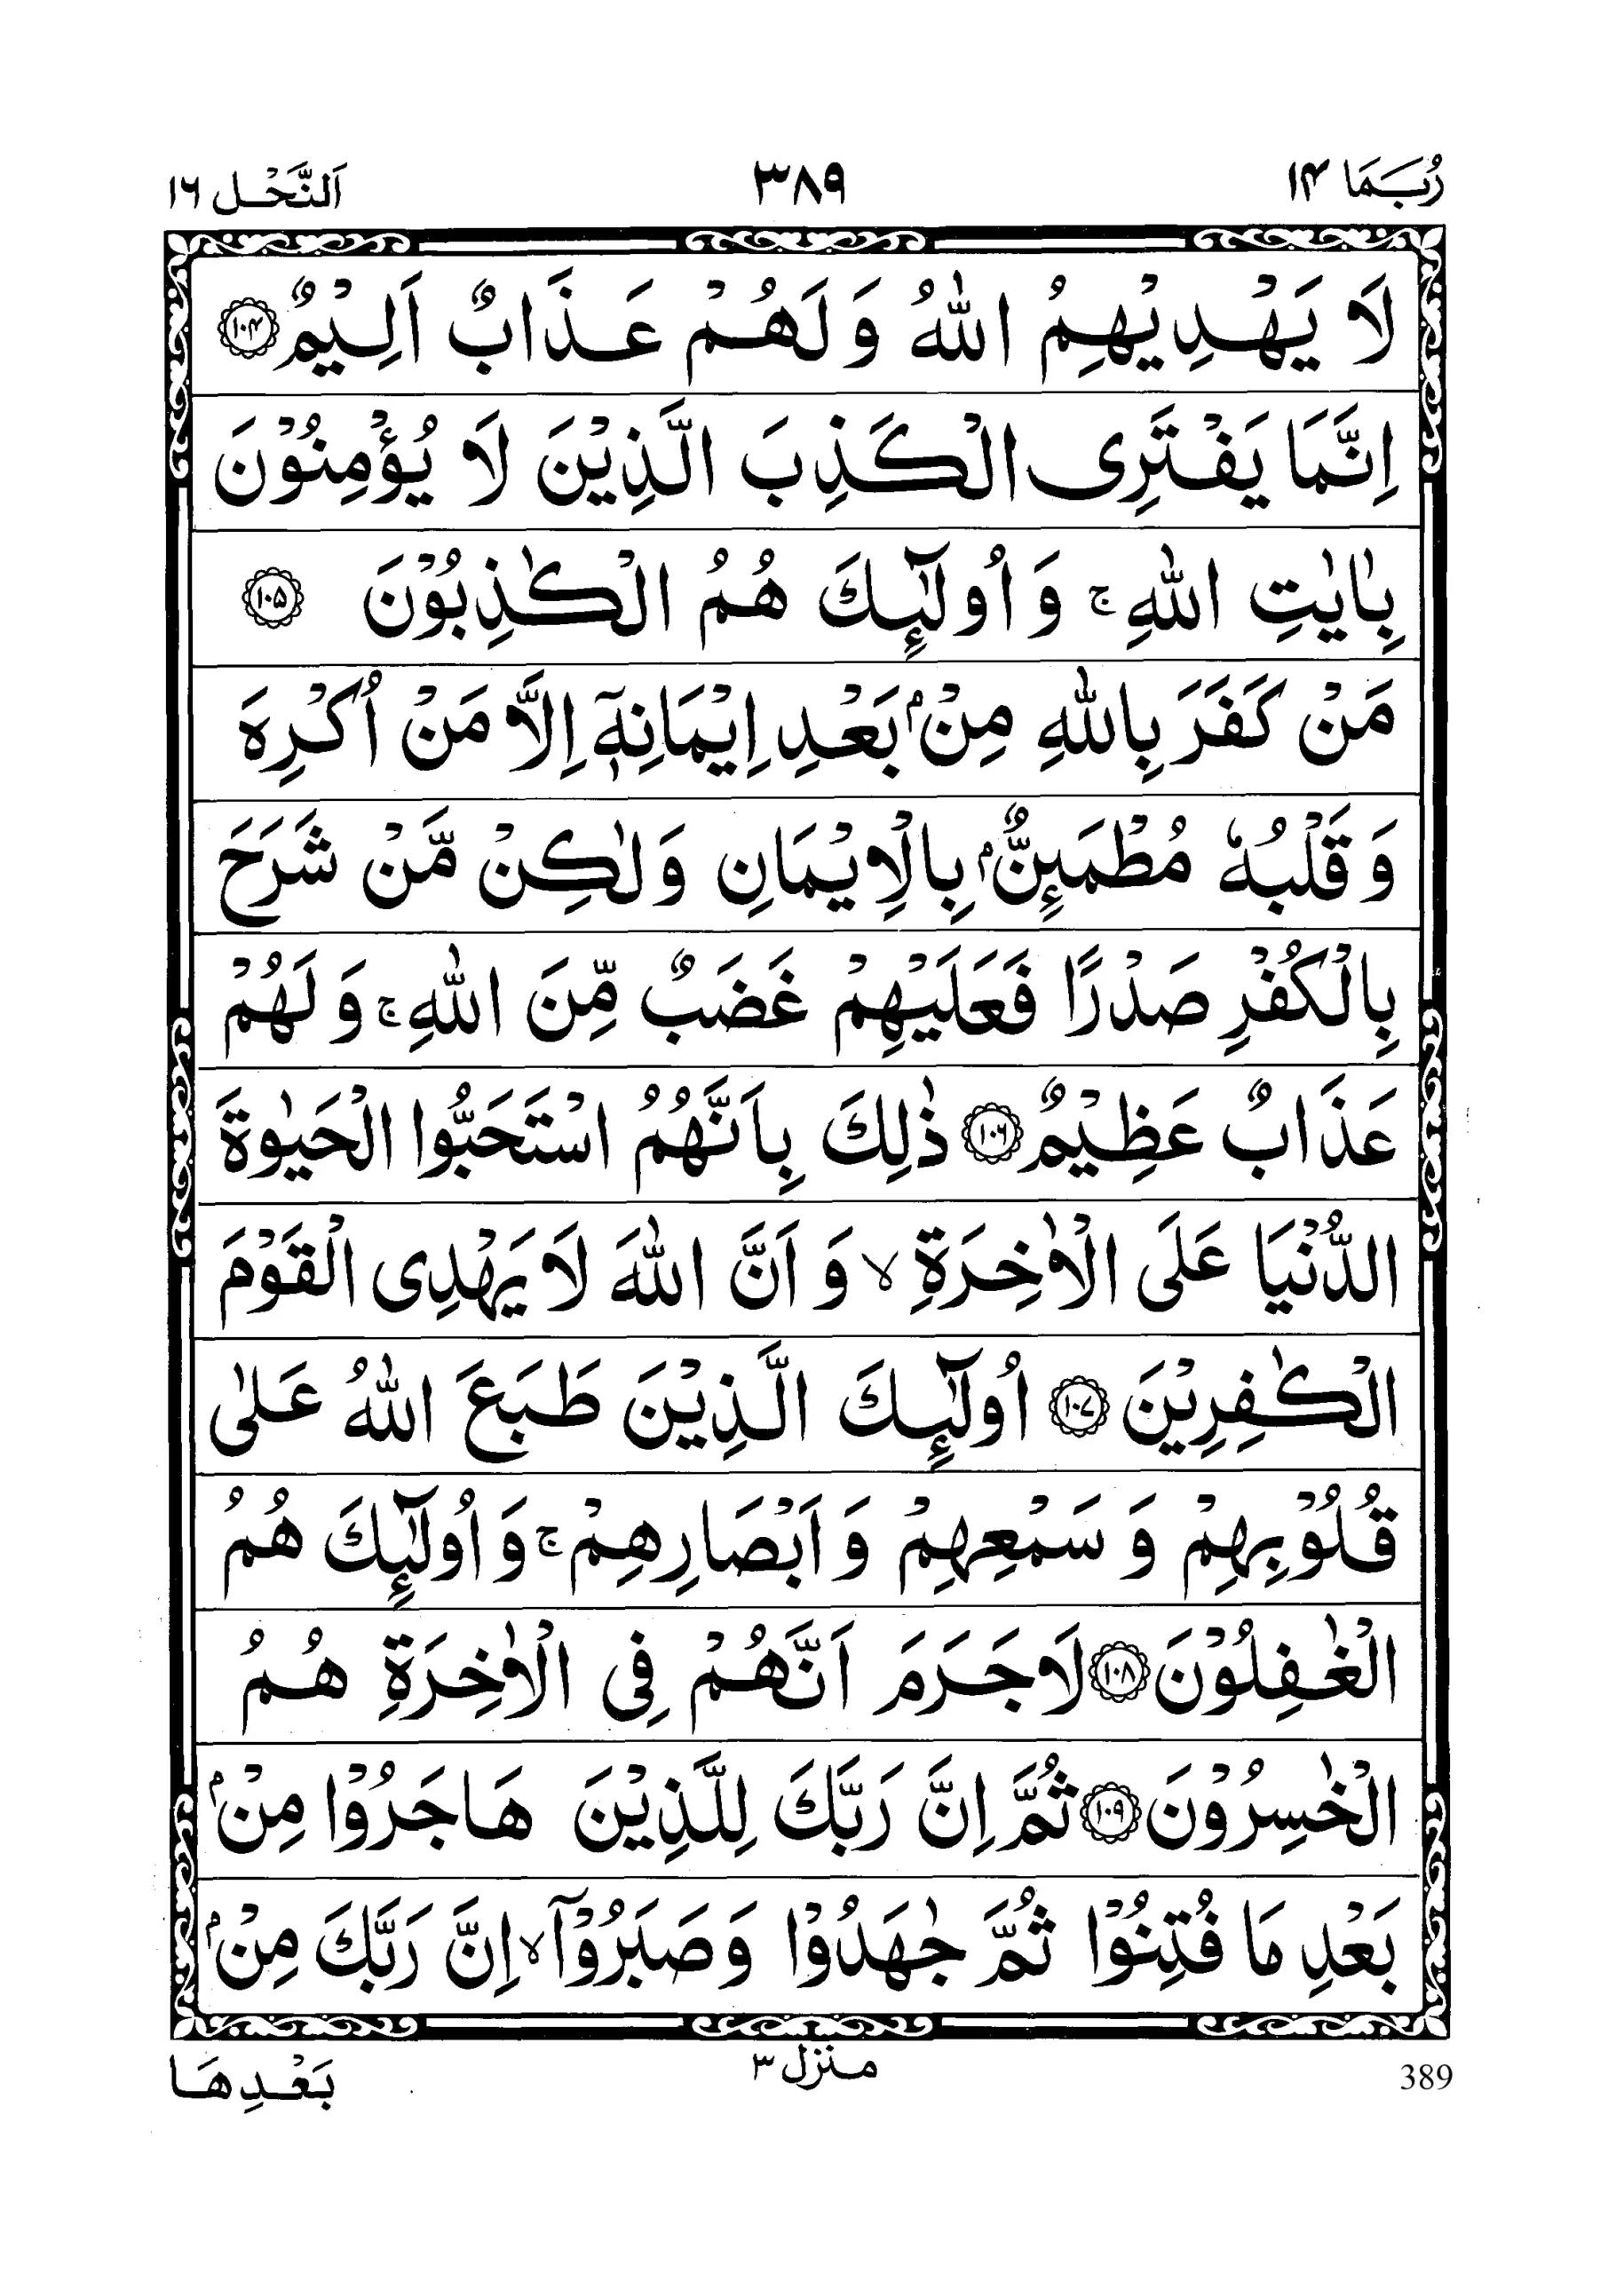 رُبَمَا ۱۴
۳۸۹
اَلنَّحْل ۱۶
لَا يَهْدِيْهِمُ اللّٰهُ وَ لَهُمْ عَذَابٌ اَلِيْمٌ ۝۱۰۴
اِنَّمَا يَفْتَرِى الْكَذِبَ الَّذِيْنَ لَا يُؤْمِنُوْنَ
بِاٰيٰتِ اللّٰهِ ۚ وَ اُولٰٓئِكَ هُمُ الْكٰذِبُوْنَ ۝۱۰۵
مَنْ كَفَرَ بِاللّٰهِ مِنْۢ بَعْدِ اِيْمَانِهٖۤ اِلَّا مَنْ اُكْرِهَ
وَ قَلْبُهٗ مُطْمَىِٕنٌّۢ بِالْاِيْمَانِ وَلٰكِنْ مَّنْ شَرَحَ
بِالْكُفْرِ صَدْرًا فَعَلَيْهِمْ غَضَبٌ مِّنَ اللّٰهِ ۚ وَ لَهُمْ
عَذَابٌ عَظِيْمٌ ۝۱۰۶ ذٰلِكَ بِاَنَّهُمُ اسْتَحَبُّوا الْحَيٰوةَ
الدُّنْيَا عَلَى الْاٰخِرَةِ ۙ وَ اَنَّ اللّٰهَ لَا يَهْدِى الْقَوْمَ
الْكٰفِرِيْنَ ۝۱۰۷ اُولٰٓئِكَ الَّذِيْنَ طَبَعَ اللّٰهُ عَلٰى
قُلُوْبِهِمْ وَ سَمْعِهِمْ وَ اَبْصَارِهِمْ ۚ وَ اُولٰٓئِكَ هُمُ
الْغٰفِلُوْنَ ۝۱۰۸ لَا جَرَمَ اَنَّهُمْ فِى الْاٰخِرَةِ هُمُ
الْخٰسِرُوْنَ ۝۱۰۹ ثُمَّ اِنَّ رَبَّكَ لِلَّذِيْنَ هَاجَرُوْا مِنْۢ
بَعْدِ مَا فُتِنُوْا ثُمَّ جٰهَدُوْا وَ صَبَرُوْۤا ۙ اِنَّ رَبَّكَ مِنْۢ
منزل ۳
389
بَعْدِهَا